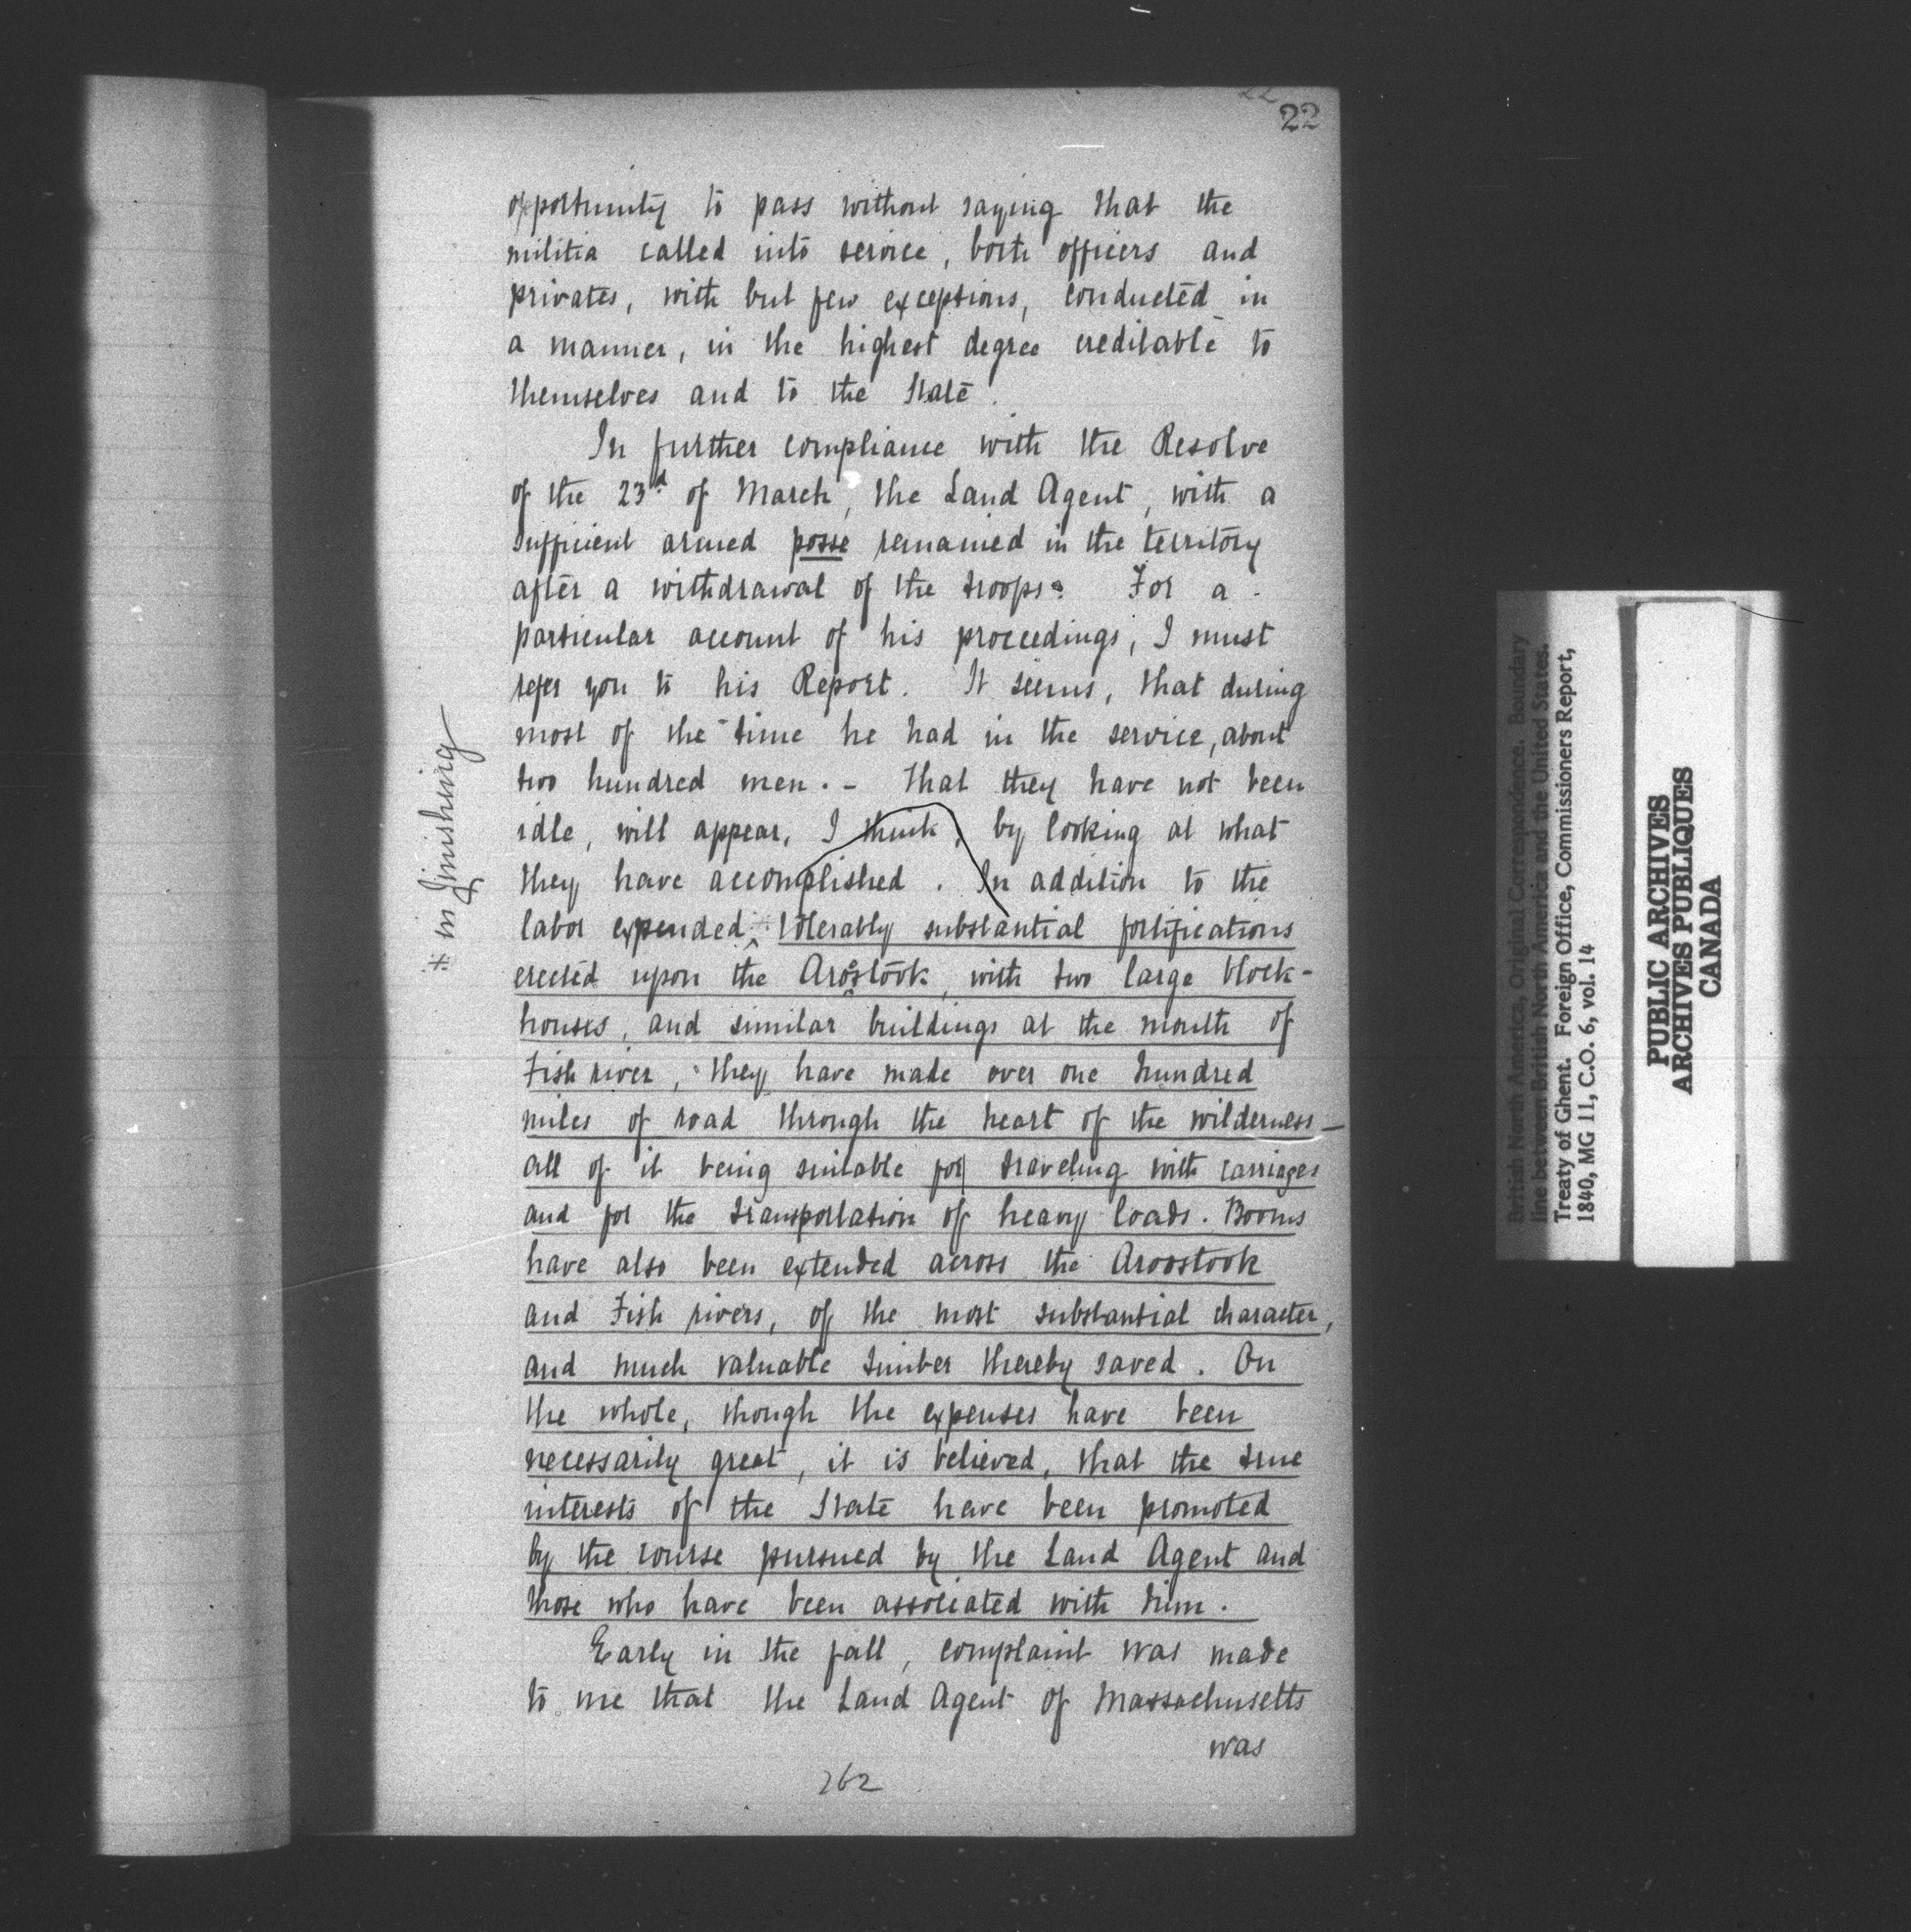 22
22
opportunity to pass without saying that the
militia called into service, both officers and
privates, with but few exceptions, conducted in
a manner, in the highest degree creditable to
themselves and to the State.
In further compliance with the Resolve
of the 23d of March, the Land Agent, with a
sufficient armed posse remained in the territory
after a withdrawal of the troops. For a
particular account of his proceedings, I must
refer you to his Report. It seems, that during
most of the time he had in the service, about
two hundred men. - That they have not been
idle, will appear, I think, by looking at what
they have accomplished. In addition to the
labor expended * tolerably substantial fortifications
erected upon the Aroostook, with two large block-
houses, and similar buildings at the mouth of
Fish river, they have made over one hundred
miles of road through the heart of the wilderness —
all of it being suitable for traveling with carriages
and for the transportation of heavy loads. Booms
have also been extended across the Aroostook
and Fish rivers, of the most substantial character,
and much valuable timber thereby saved. On
the whole, though the expenses have been
necessarily great, it is believed, that the true
interests of the State have been promoted
by the course pursued by the Land Agent and
those who have been associated with him.
Early in the fall, complaint was made
to me that the Land Agent of Massachusetts
was
262
* in finishing
British North America, Original Correspondence. Boundary
line between British North America and the United States.
Treaty of Ghent. Foreign Office, Commissioners Report,
1840, MG 11, C.O. 6, vol. 14
PUBLIC ARCHIVES
ARCHIVES PUBLIQUES
CANADA